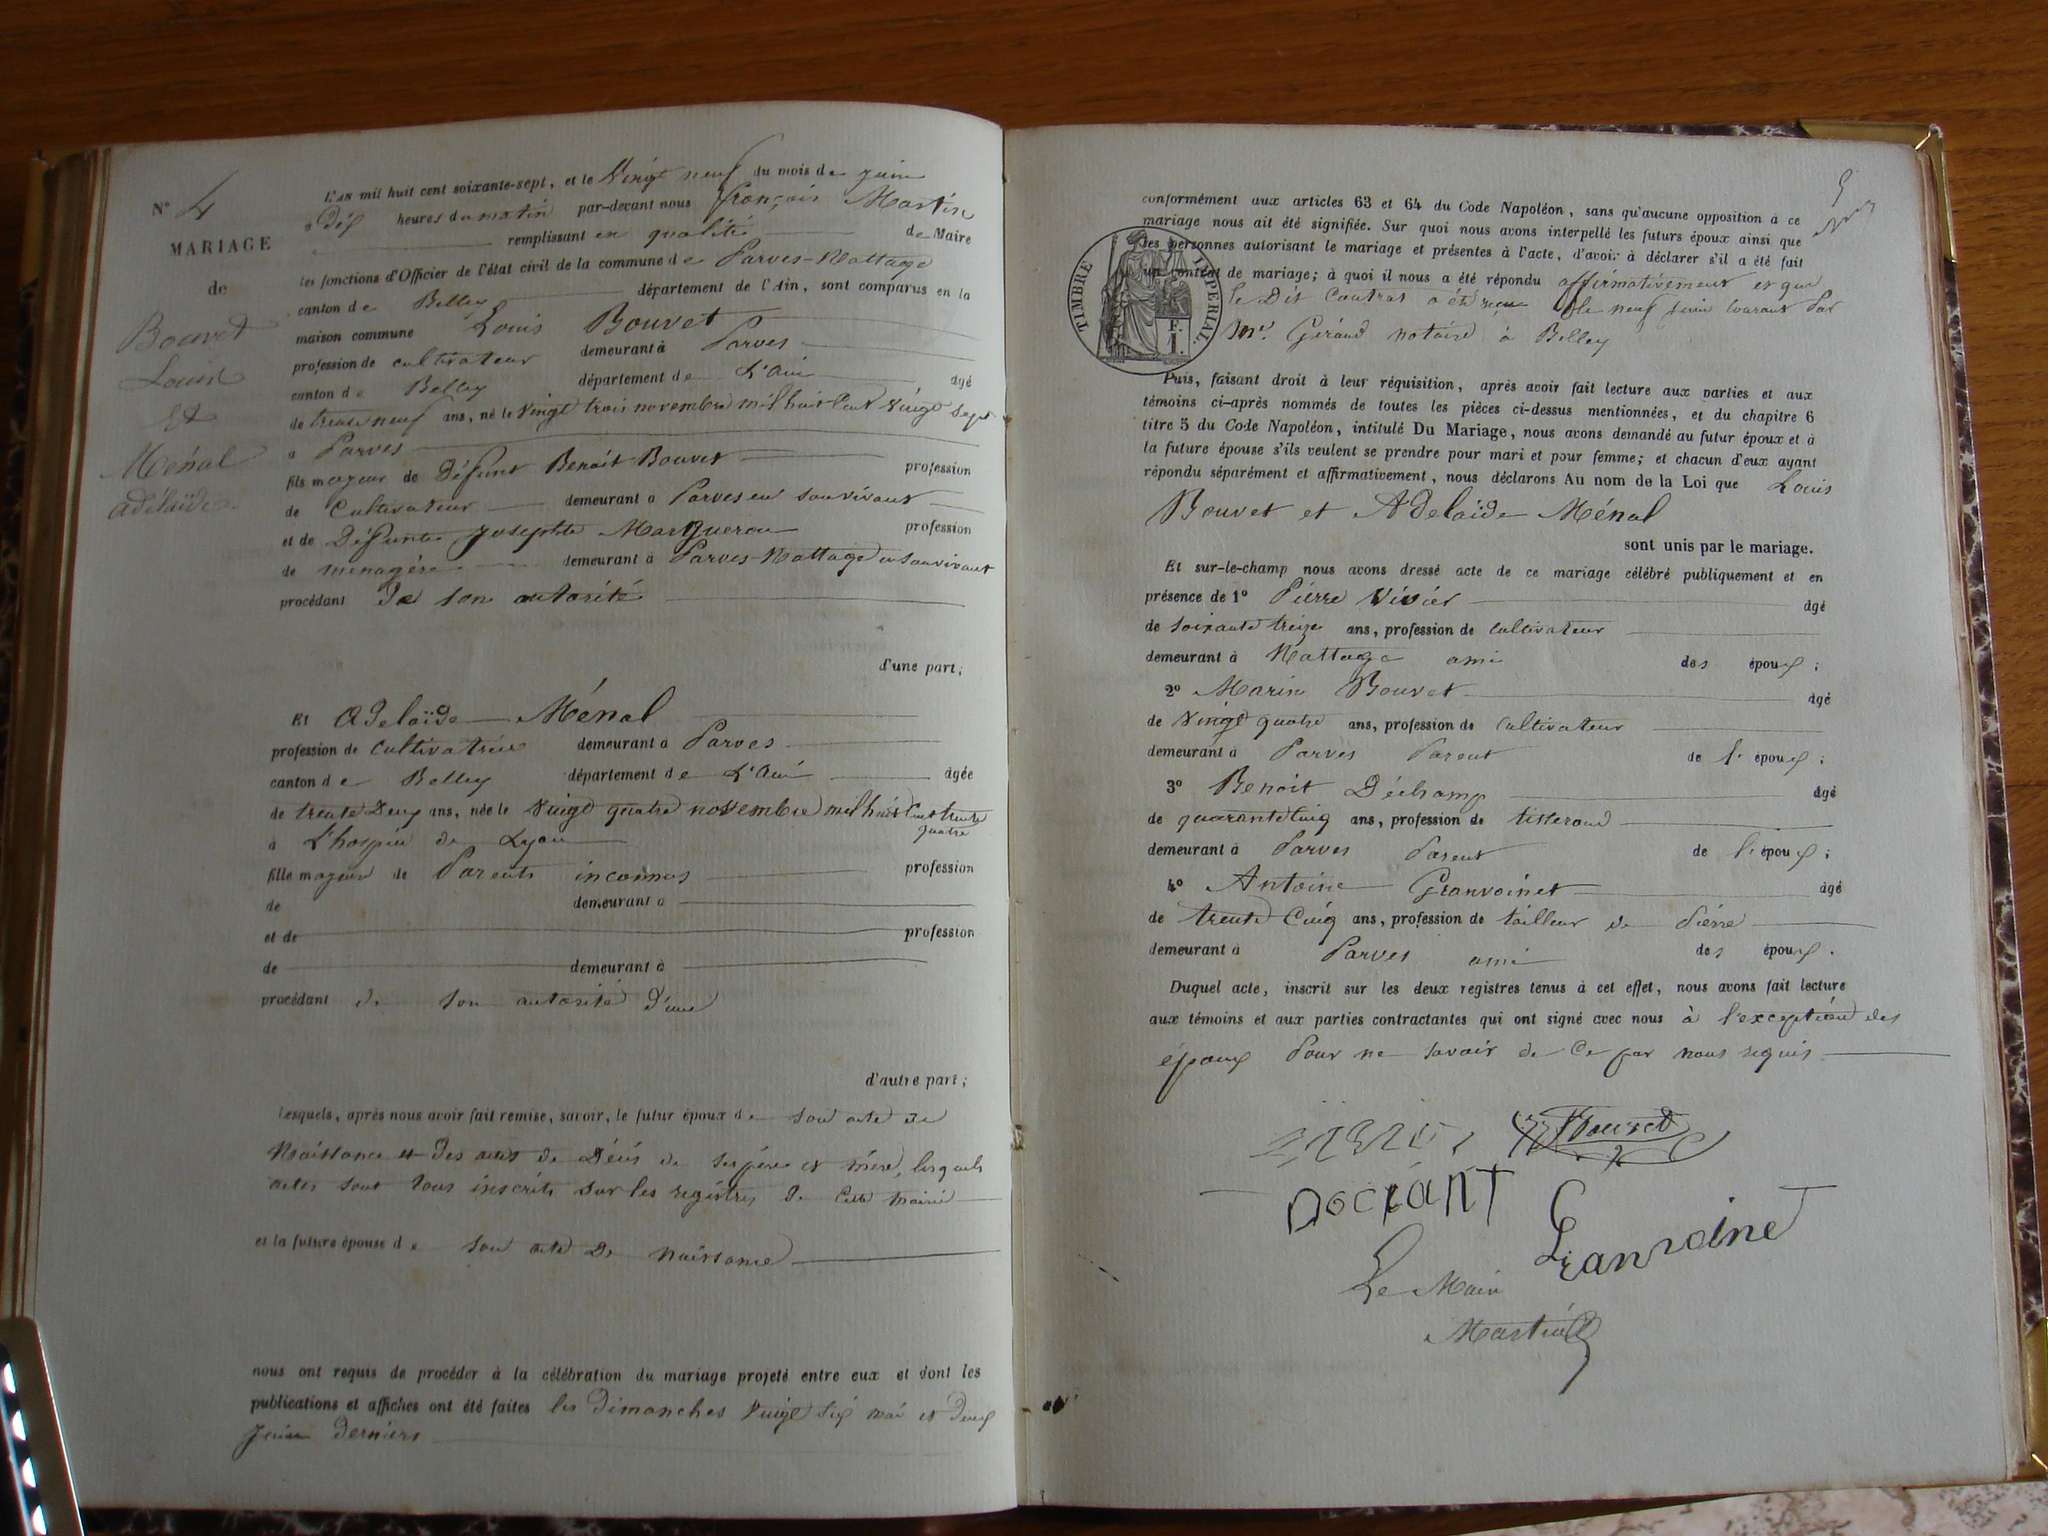 N° 4
MARIAGE
de
Bouvet
Louis
Et
Ménal
adélaïde
L'AN mil huit cent soixante-sept, et le Vingt neuf du mois de juin
à Dix heures du matin par-devant nous françois Martin
remplissant en qualité de Maire
les fonctions d'Officier de l'état civil de la commune de Parves-Nattage
canton de Belley département de l'Ain, sont comparus en la
maison commune Louis Bouvet
profession de cultivateur demeurant à Parves
canton de Belley département de L'Ain âgé
de trente neuf ans, né le Vingt trois novembre mil huit Cent Vingt sept
à Parves
fils majeur de Défunt Benoit Bouvet profession
de Cultivateur demeurant à Parves en son vivant
et de Défunte Josephte profession
de menagère demeurant à Parves-Nattage en son vivant
procédant De son autorité
d'une part;
Et Adelaïde Ménal
profession de Cultivatrice demeurant à Parves
canton de Belley département de L'Ain âgée
de trente Deux ans, née le Vingt quatre novembre mil huit Cent trente
quatre
à L'hospice de Lyon
fille majeur de Parents inconnus profession
de demeurant à
et de profession
de demeurant à
procédant de son autorité D'une
d'autre part;
Lesquels, après nous avoir fait remise, savoir, le futur époux de son acte de
Naissance et des actes de Décès de ses père et mère, lesquels
actes sont tous inscrits sur les registres de Cette mairie
et la future épouse de son acte de naissance
nous ont requis de procéder à la célébration du mariage projeté entre eux et dont les
publications et affiches ont été faites les Dimanches Vingt six mai et Deux
Juin Derniers
5
conformément aux articles 63 et 64 du Code Napoléon, sans qu'aucune opposition à ce
mariage nous ait été signifiée. Sur quoi nous avons interpellé les futurs époux ainsi que
les personnes autorisant le mariage et présentes à l'acte, d'avoir à déclarer s'il a été fait
un contrat de mariage; à quoi il nous a été répondu affirmativement et que
le Dit Contrat a été reçu le neuf juin courant Par
Me Gérand notaire à Belley
TIMBRE IMPERIAL
1 F.
Puis, faisant droit à leur réquisition, après avoir fait lecture aux parties et aux
témoins ci-après nommés de toutes les pièces ci-dessus mentionnées, et du chapitre 6
titre 5 du Code Napoléon, intitulé Du Mariage, nous avons demandé au futur époux et à
la future épouse s'ils veulent se prendre pour mari et pour femme; et chacun d'eux ayant
répondu séparément et affirmativement, nous déclarons Au nom de la Loi que Louis
Bouvet et Adelaïde Ménal
sont unis par le mariage.
Et sur-le-champ nous avons dressé acte de ce mariage célébré publiquement et en
présence de 1° Pierre Vivier âgé
de soixante treize ans, profession de Cultivateur
demeurant à Nattage ami des époux;
2° Marin Bouvet âgé
de Vingt quatre ans, profession de Cultivateur
demeurant à Parves Parent de l'époux;
3° Benoit Déchamp âgé
de quarante Cinq ans, profession de tisserand
demeurant à Parves Parent de l'époux;
4° Antoine Granvoinet âgé
de trente Cinq ans, profession de tailleur de Pierre
demeurant à Parves ami des époux.
Duquel acte, inscrit sur les deux registres tenus à cet effet, nous avons fait lecture
aux témoins et aux parties contractantes qui ont signé avec nous à l'exception des
époux Pour ne savoir de Ce par nous requis
Bouvet
Granvoinet
Le Maire
Martin